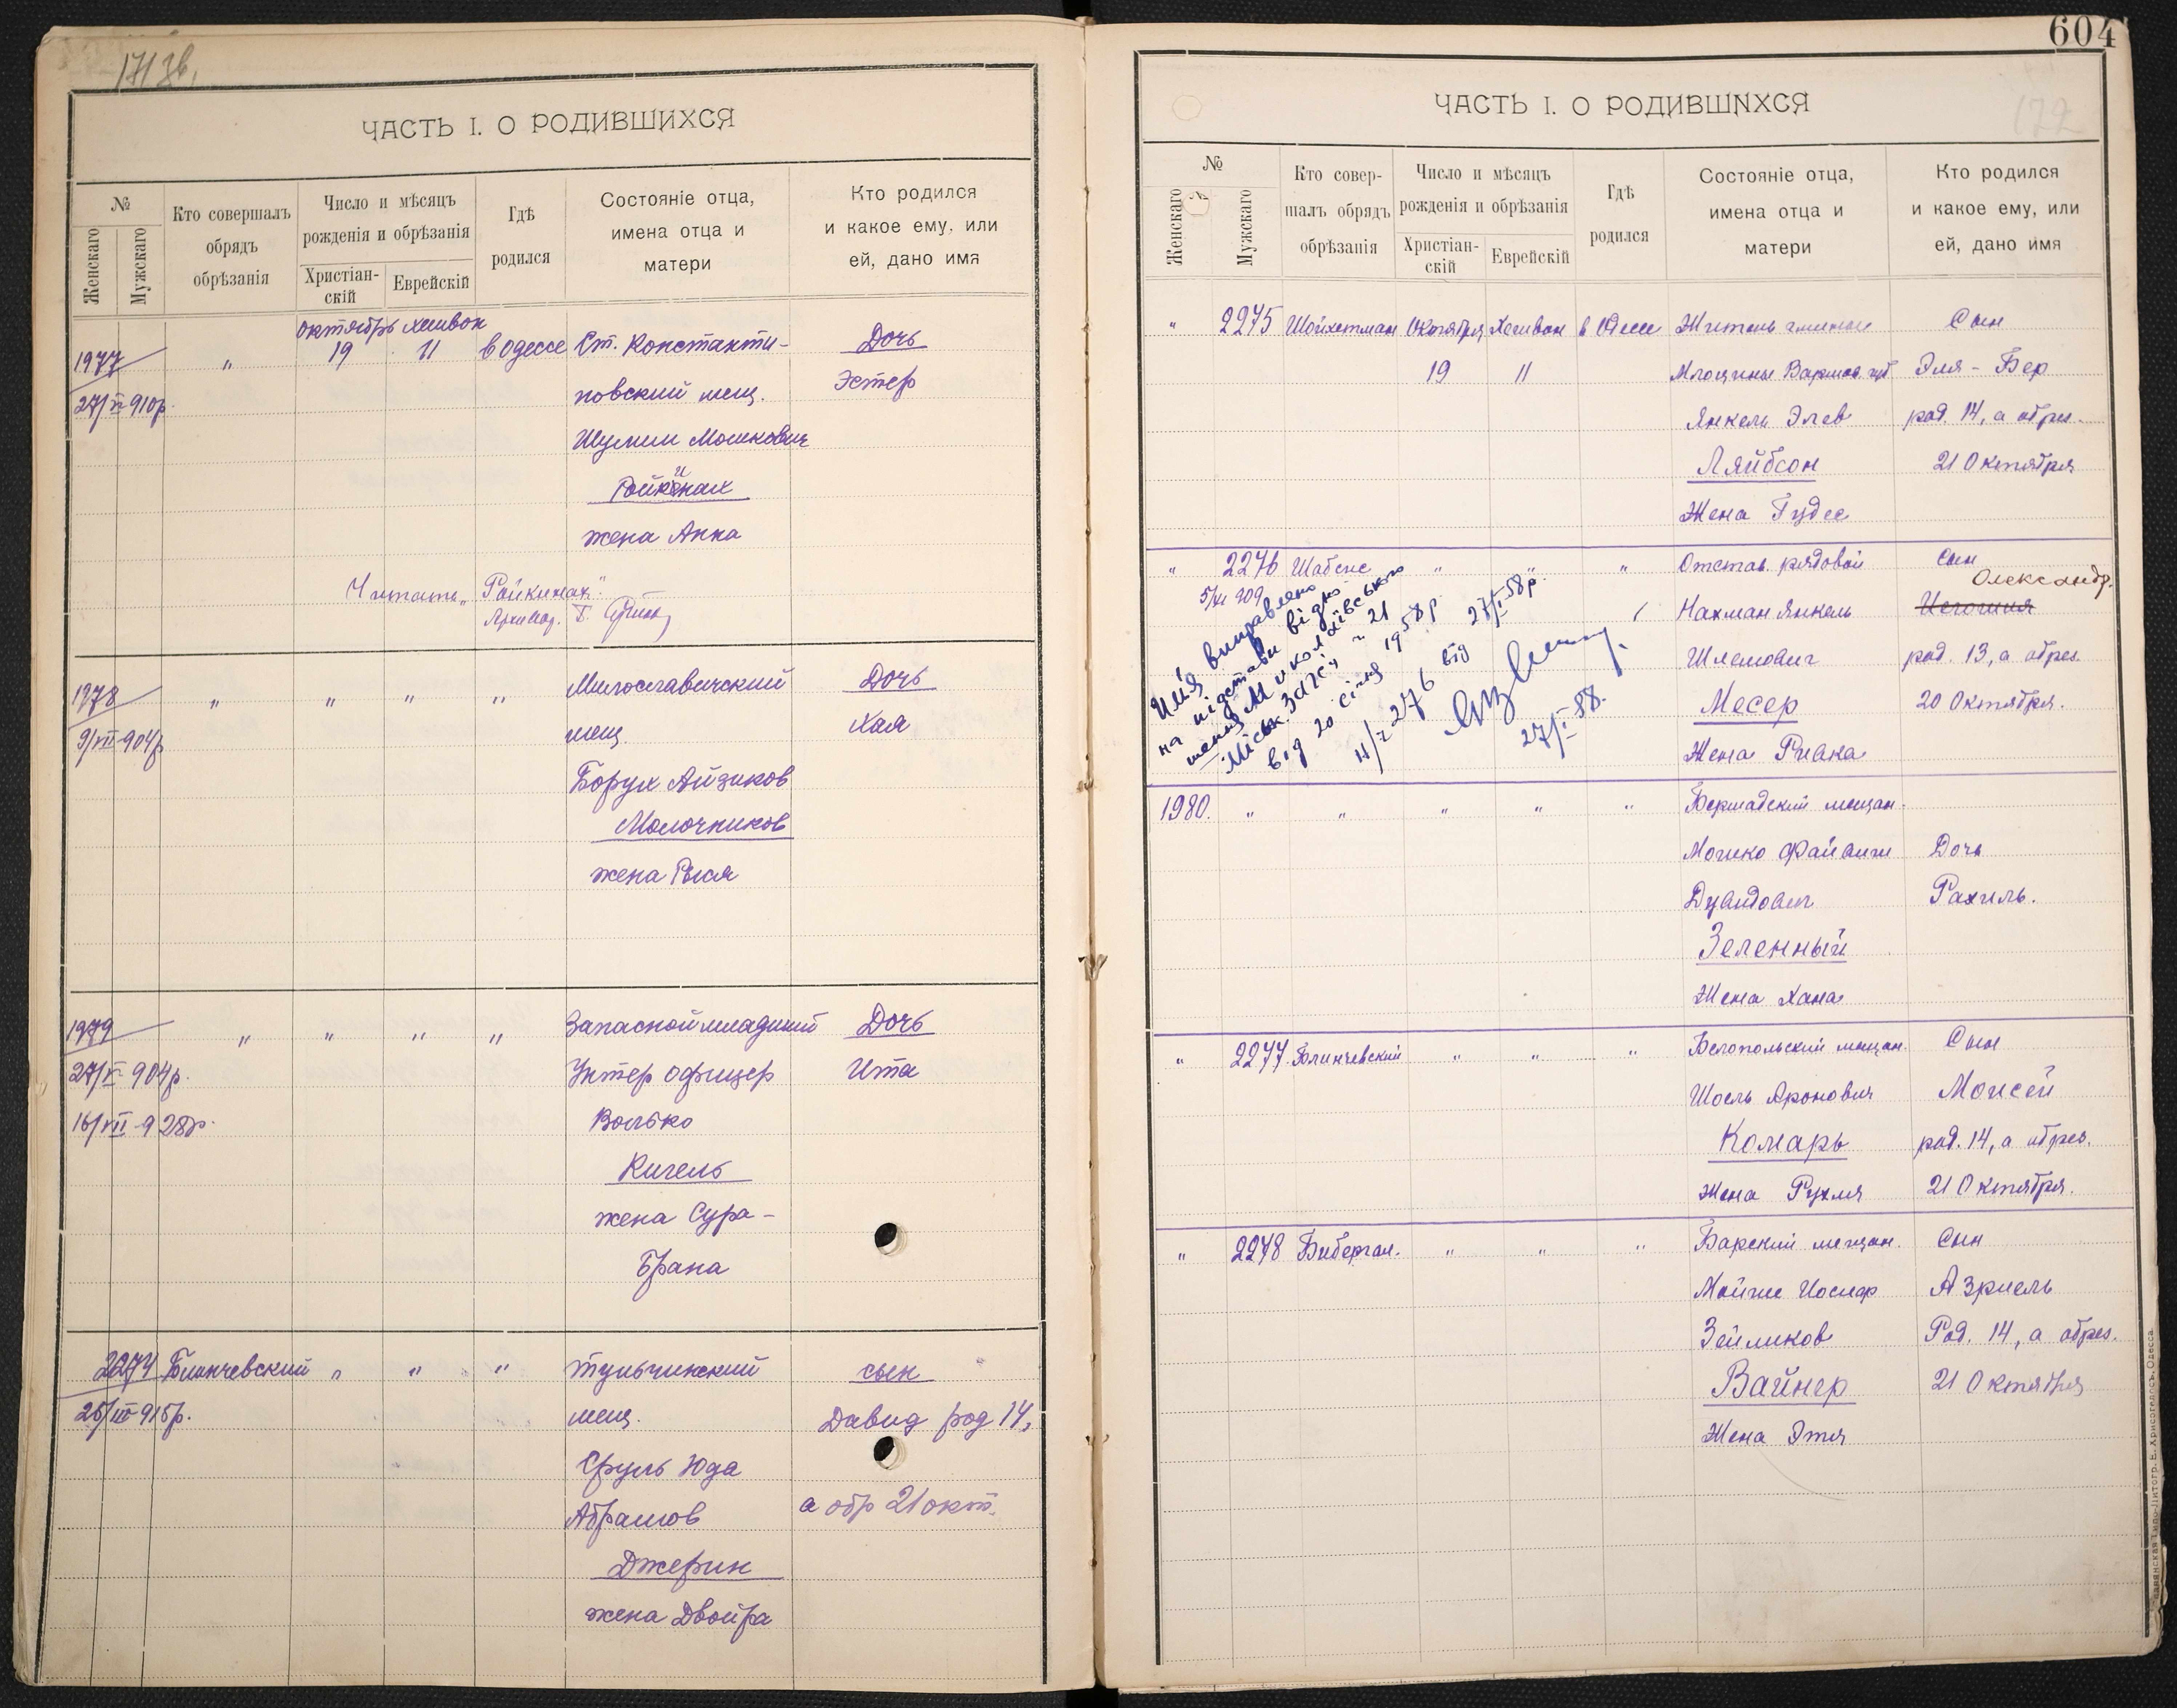 171 зв.
ЧАСТЬ I. О РОДИВШИХСЯ
№
Женскаго
Мужскаго
Кто совершалъ
обрядъ
обрѣзанія
Число и мѣсяцъ
рожденія и обрѣзанія
Христіан-
скій
Еврейскій
Гдѣ
родился
Состояніе отца,
имена отца и
матери
Кто родился
и какое ему, или
ей, дано имя
октябрь хешвон
1977 " 19 11 в Одессе Ст. Константи- Дочь
27/VI 910р. новский мещ. Эстер
Шулим Мошкович
Ройкинах
жена Анна
Читать „Райкинах"
Архивар.
1978 " " " " Милославичский Дочь
9/VII 904р мещ. Хая
Борух Айзиков
Молочников
жена Рыся
1979 " " " " Запасной младший Дочь
27/V 904р. Унтер офицер Ита
16/VII 928р. Волько
Кигель
жена Сура-
Брана
2274 Блинчевский " " " Тульчинский сын
26/III 915р. мещ. Давид род 14,
Сруль Юда
Абрамов а обр 21 окт.
Джерин
жена Двойра
604
172
ЧАСТЬ I. О РОДИВШИХСЯ
№
Женскаго
Мужскаго
Кто совер-
шалъ обрядъ
обрѣзанія
Число и мѣсяцъ
рожденія и обрѣзанія
Христіан-
скій
Еврейскій
Гдѣ
родился
Состояніе отца,
имена отца и
матери
Кто родился
и какое ему, или
ей, дано имя
" 2275 Шойхетман Октября Хешвон в Одессе Житель гмины Сын
19 11 Млоцины Варшав. губ Эля-Бер
Янкель Элев род. 14, а обрез.
Ляйбсон 21 Октября
Жена Гудес
" 2276 Шабсис " " " Отстав. рядовой Сын
Олександр.
5/XI 909 Нахман Янкель
Шлемович род. 13, а обрез.
Месер 20 Октября.
Жена Ривка
Им'я виправлено
на підставі відно-
шення Миколаївського
Міськ. ЗАГС'у № 21
від 20 січня 1958 р
И/2-276 від 27/I-58р.
27/I-58.
1980. " " " " " Бершадский мещан.
Мошко Файвиш Дочь
Дувидович Рахиль.
Зеленный
Жена Хана
" 2277 Блинчевский " " " Белопольский мещан. Сын
Шоель Аронович Моисей
Комарь род. 14, а обрез.
Жена Рухля 21 Октября.
" 2278 Бибергал. " " " Барский мещан. Сын
Мойше Иосиф Азриель
Зейликов Род. 14, а обрез.
Вайнер 21 Октября
Жена Этя